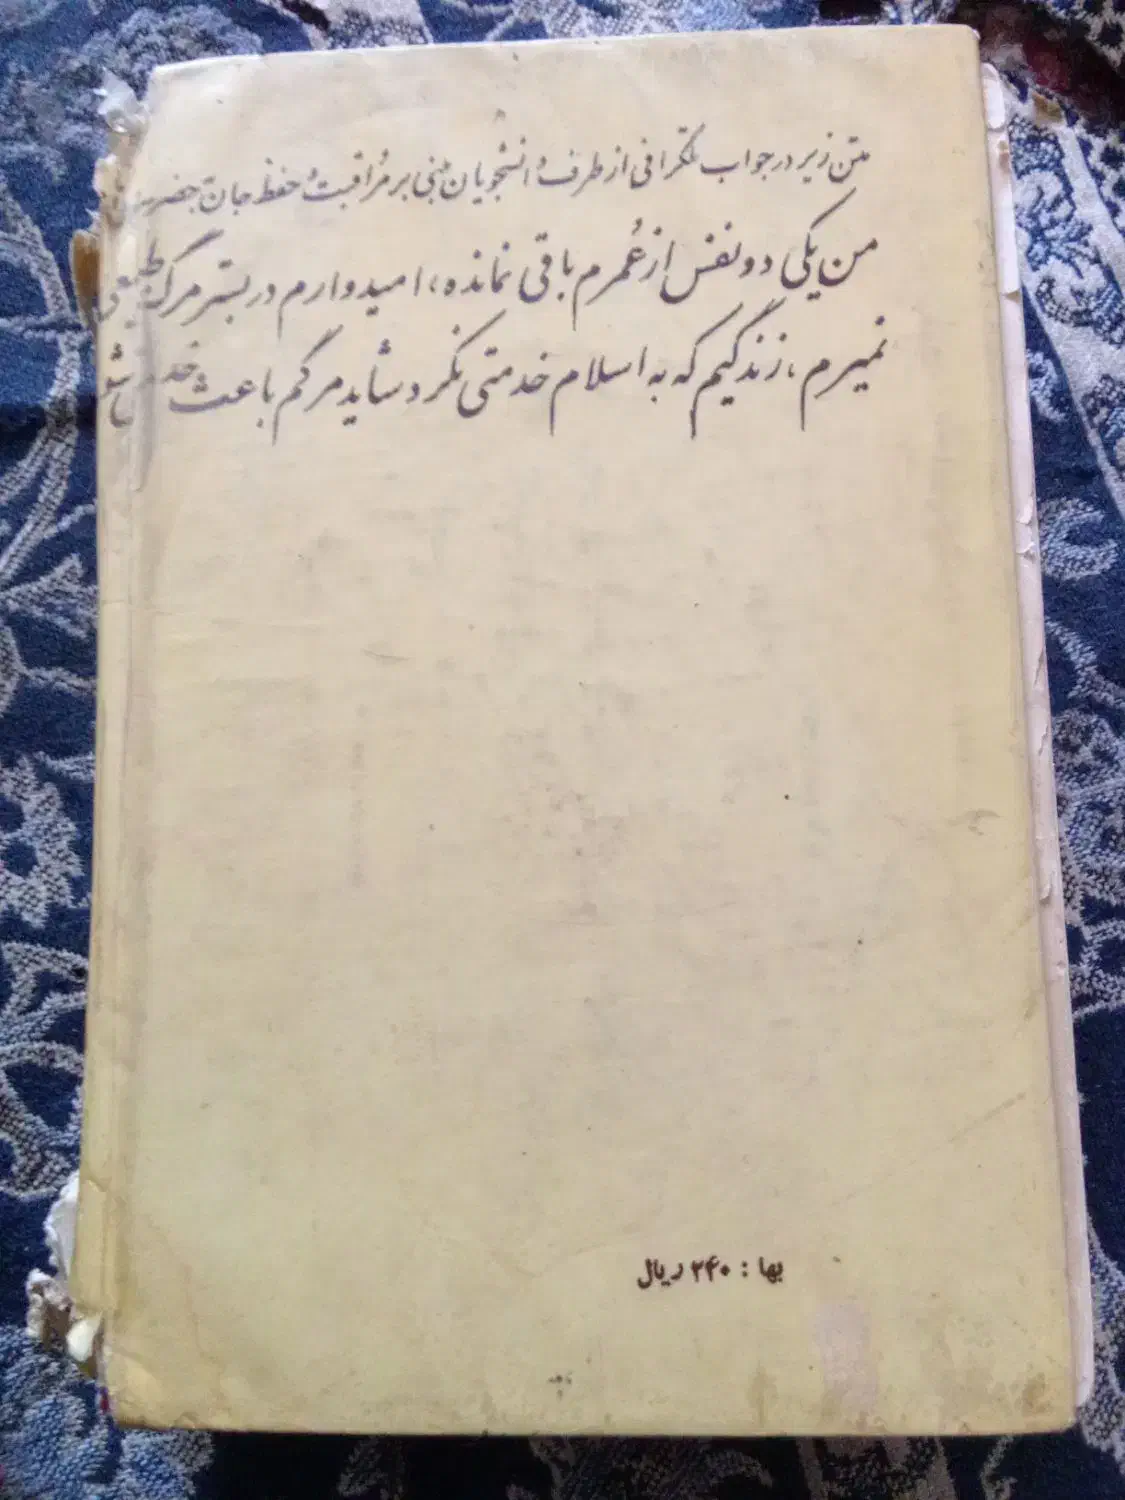 متن زیر در جواب تلگرافی از طرف دانشجویان مبنی بر مراقبت و حفظ جان
من یکی دو نفس از عُمرم باقی نمانده، امیدوارم در بستر مرگ طبیعی
نمیرم، زندگیم که به اسلام خدمتی نکرد شاید مرگم باعث
بها : ۲۴۰ ریال